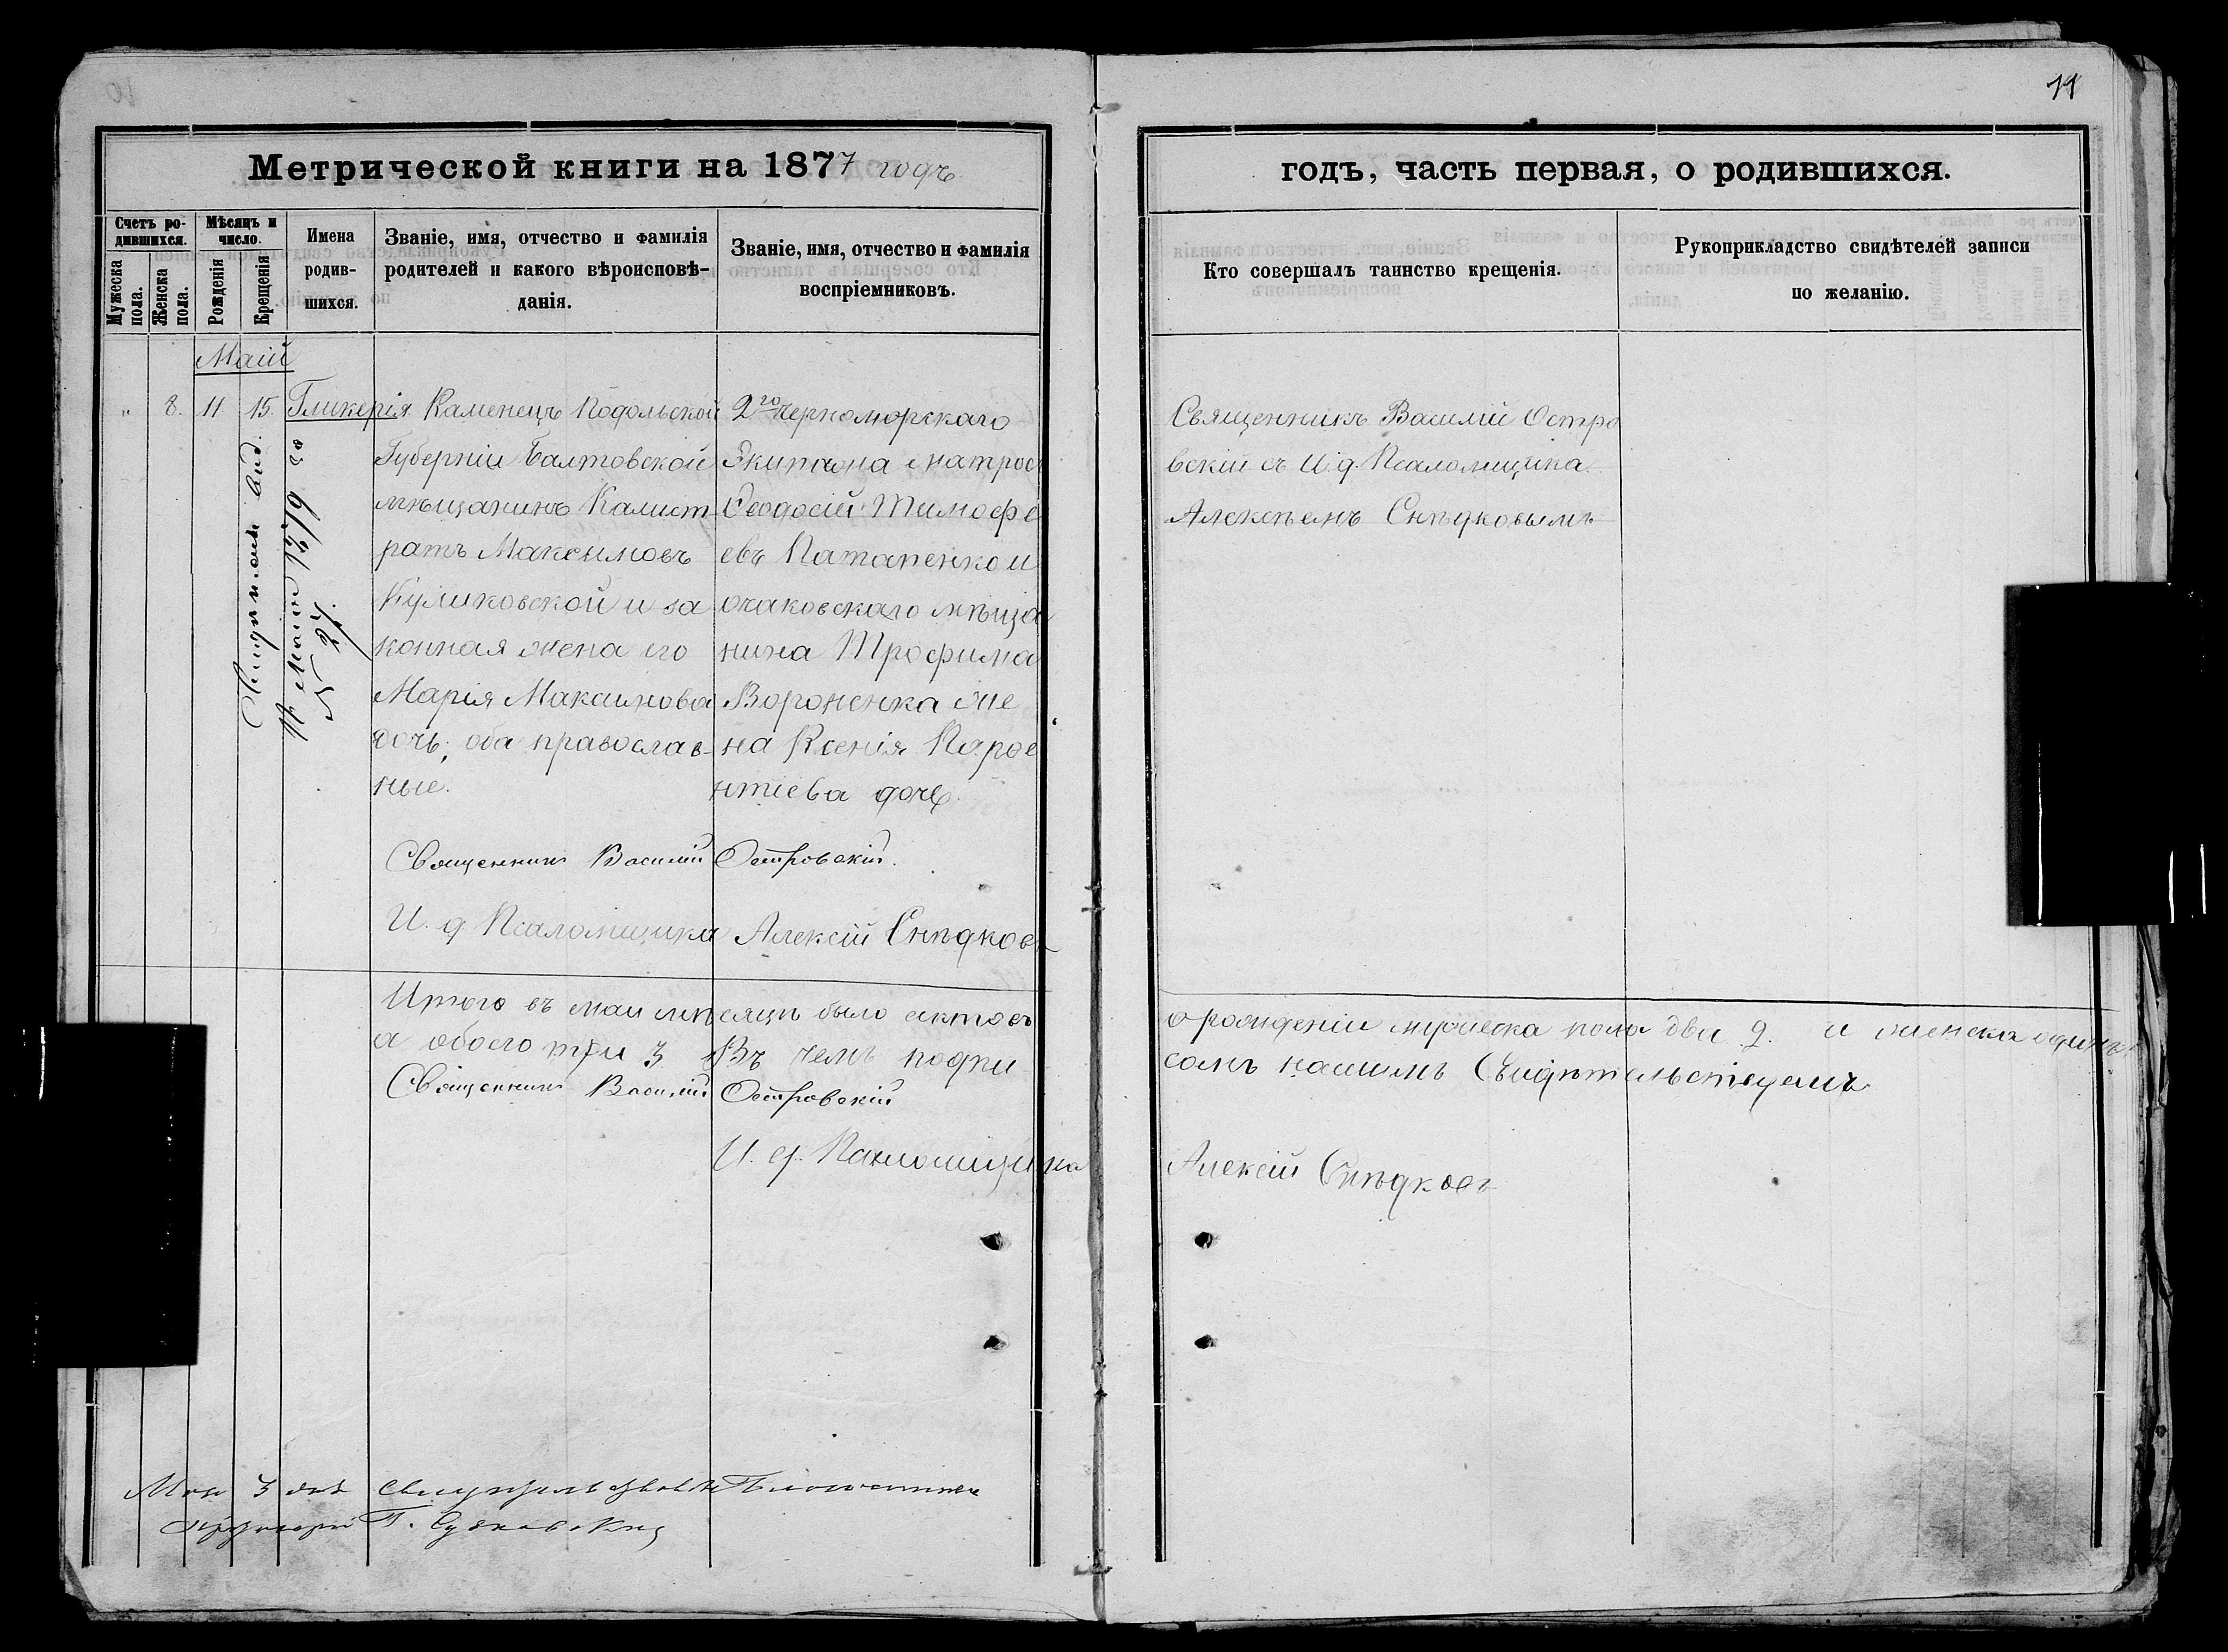 11
Метрической книги на 1877 годъ
годъ, часть первая, о родившихся.
Счетъ родившихся.
Мужеска пола.
Женска пола.
Мѣсяцъ и число.
Рожденія
Крещенія
Имена родившихся.
Званіе, имя, отчество и фамилія
родителей и какого вѣроисповѣ-
данія.
Званіе, имя, отчество и фамилія
воспріемниковъ.
Кто совершалъ таинство крещенія.
Рукоприкладство свидѣтелей записи
по желанію.
Маій
" 8. 11 15. Гликерія
Каменецъ Подольской
Губерніи Балтовской
мѣщанинъ Калист-
ратъ Максимовъ
Куликовской и за
конная жена его
Марія Максимова
дочь; оба православ-
ные.
2го Черноморскаго
Экипажа матрос
Ѳеодосій Тимофе
евъ Патапенко и
очаковскаго мѣща
нина Трофима
Вороненка же
на Ксенія Парѳе
нтіева дочь.
Священникъ Василій Островскій.
И. д Псаломщика Алексій Снѣдковъ
Священникъ Василій Остро
вскій съ И. д. Псаломщика
Алексѣемъ Снѣдковымъ
Итого въ маи мѣсяцѣ было актовъ о рожденіи мужеска пола два 2. и женска одинъ
а обоего три 3 Въ чемъ подписомъ нашимъ Свидѣтельствуемъ
Священникъ Василій Островскій
И. д. Псаломщика Алексій Снѣдковъ